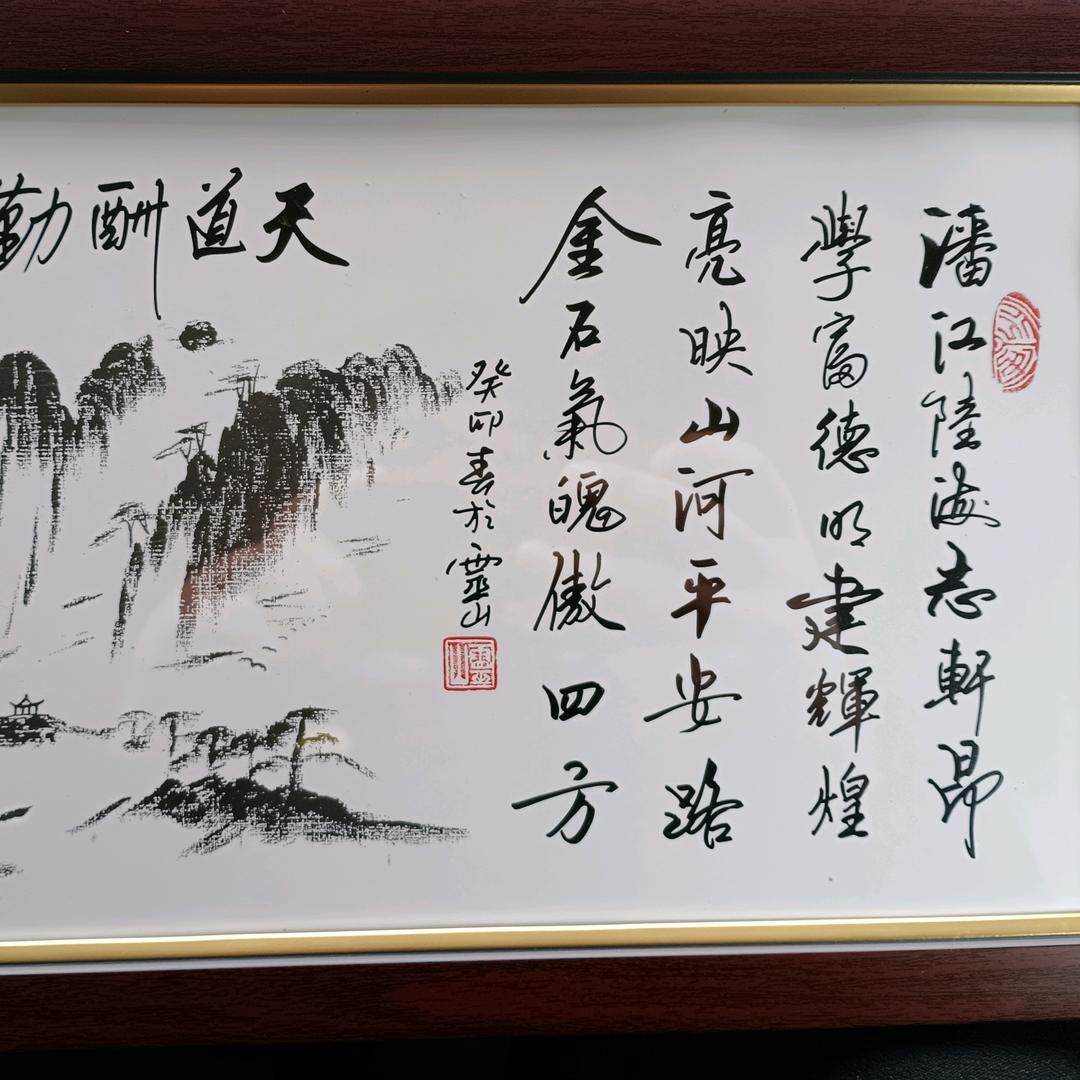 潘江陸海志軒昂
學富德明建輝煌
亮映山河平安路
金石氣魄傲四方
癸卯春於靈山
天道酬勤